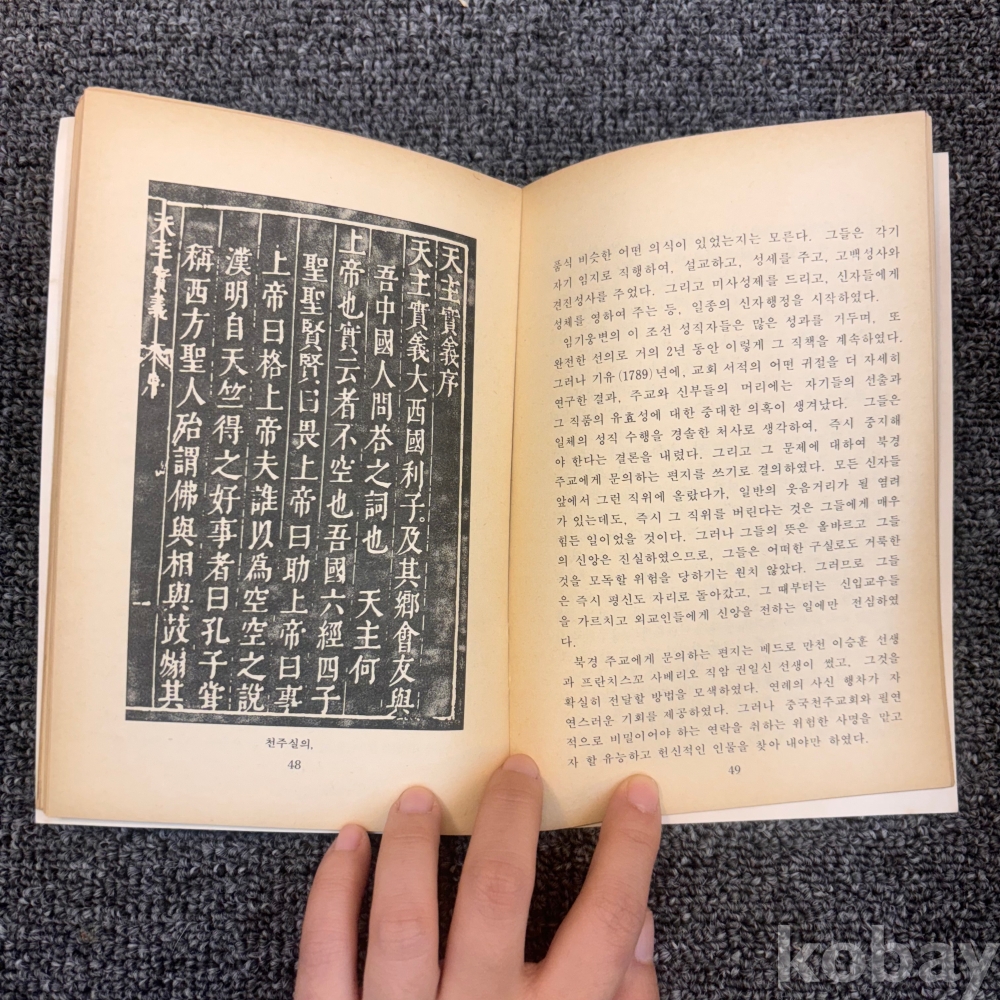 天主實義序
天主實義大西國利子及其鄉會友與
吾中國人問答之詞也 天主何
上帝也實云者不空也吾國六經四子
聖聖賢賢曰畏上帝曰助上帝曰事
上帝曰格上帝夫誰以爲空空之說
漢明自天竺得之好事者曰孔子嘗
稱西方聖人殆謂佛與相與鼓煽其
천주실의,
48
품식 비슷한 어떤 의식이 있었는지는 모른다. 그들은 각기
자기 임지로 직행하여, 설교하고, 성세를 주고, 고백성사와
견진성사를 주었다. 그리고 미사성제를 드리고, 신자들에게
성체를 영하여 주는 등, 일종의 신자행정을 시작하였다.
임기웅변의 이 조선 성직자들은 많은 성과를 거두며, 또
완전한 선의로 거의 2년 동안 이렇게 그 직책을 계속하였다.
그러나 기유(1789)년에, 교회 서적의 어떤 귀절을 더 자세히
연구한 결과, 주교와 신부들의 머리에는 자기들의 선출과
그 직품의 유효성에 대한 중대한 의혹이 생겨났다. 그들은
일체의 성직 수행을 경솔한 처사로 생각하여, 즉시 중지해
야 한다는 결론을 내렸다. 그리고 그 문제에 대하여 북경
주교에게 문의하는 편지를 쓰기로 결의하였다. 모든 신자들
앞에서 그런 직위에 올랐다가, 일반의 웃음거리가 될 염려
가 있는데도, 즉시 그 직위를 버린다는 것은 그들에게 매우
힘든 일이었을 것이다. 그러나 그들의 뜻은 올바르고 그들
의 신앙은 진실하였으므로, 그들은 어떠한 구실로도 거룩한
것을 모독할 위험을 당하기는 원치 않았다. 그러므로 그들
은 즉시 평신도 자리로 돌아갔고, 그 때부터는 신입교우들
을 가르치고 외교인들에게 신앙을 전하는 일에만 전심하였
다.
북경 주교에게 문의하는 편지는 베드로 만천 이승훈 선생
과 프란치스꼬 사베리오 직암 권일신 선생이 썼고, 그것을
확실히 전달할 방법을 모색하였다. 연례의 사신 행차가 자
연스러운 기회를 제공하였다. 그러나 중국천주교회와 필연
적으로 비밀이어야 하는 연락을 취하는 위험한 사명을 맡고
자 할 유능하고 헌신적인 인물을 찾아 내야만 하였다.
49
kobay